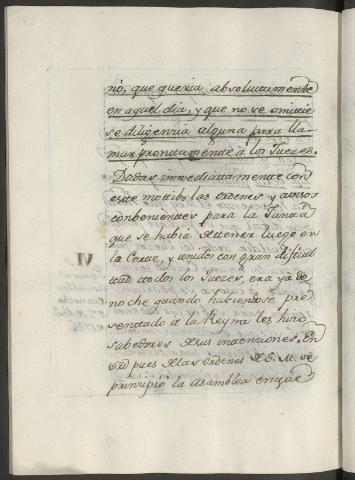 nó, que queria absolutamente
en aquel dia, y que no se omitie
se diligenzia alguna para lla-
mar prontamente â los Juezes.
Dadas inmediatamente con
este motibo las ordenes y avisos
combenientes para la Junta
que se había detener luego en
la Corte, y unidos con gran dificul
tad todos los Juezes, era yá de
noche quando habiendose pre
sentado â la Reyna les hizo
sabedores de sus intenciones. En
pues de las ordenes de S. M. se
prinzipió la asamblea en que
VI